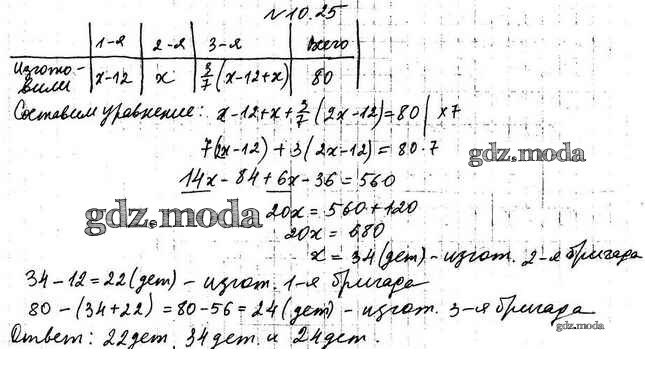 №10.25
1-я 2-я 3-я Всего
Изгото-
вили x-12 x 3/7(x-12+x) 80
Составим уравнение: x-12+x+3/7(2x-12)=80 | x7
7(2x-12)+3(2x-12)=80·7
gdz.moda
14x-84+6x-36=560
gdz.moda
20x=560+120
20x=680
x=34(дет)-изгот. 2-я бригада
34-12=22(дет)-изгот. 1-я бригада
80-(34+22)=80-56=24(дет)-изгот. 3-я бригада
gdz.moda
Ответ: 22дет, 34дет. и 24дет.